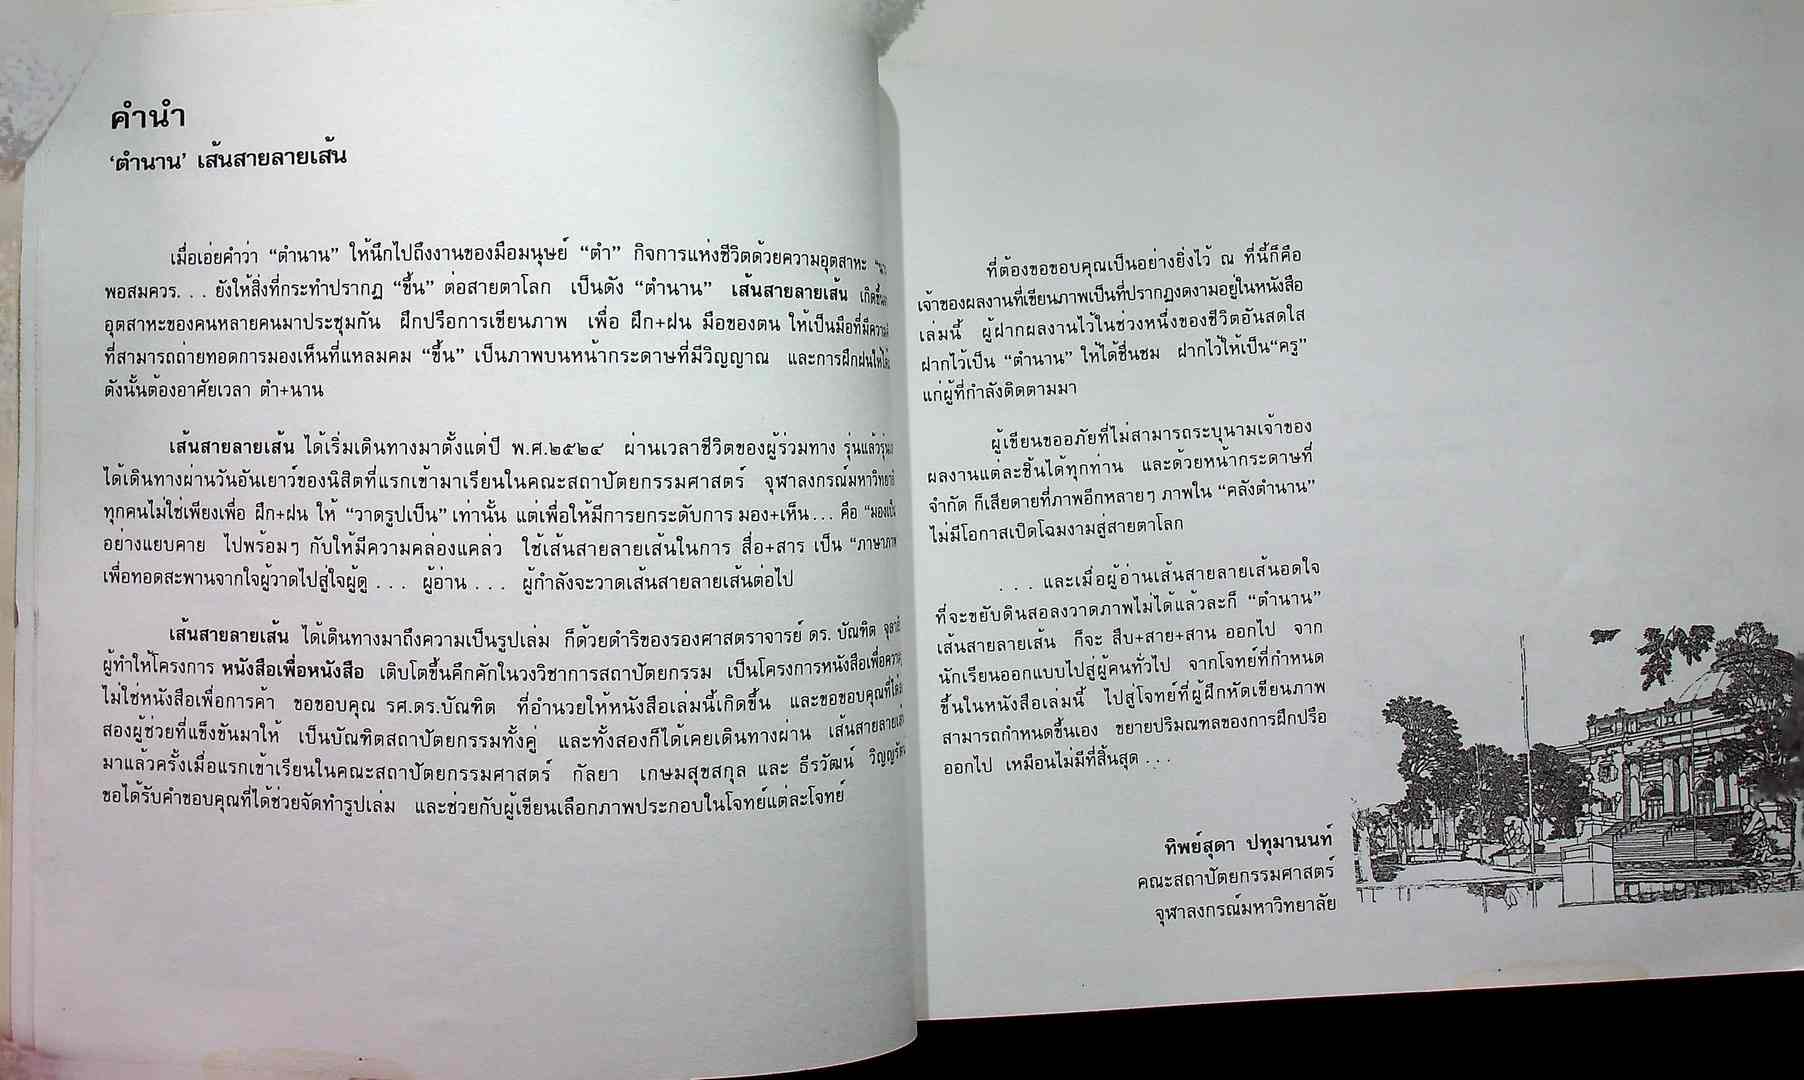 คำนำ
‘ตำนาน’ เส้นสายลายเส้น
เมื่อเอ่ยคำว่า “ตำนาน” ให้นึกไปถึงงานของมือมนุษย์ “ตำ” กิจการแห่งชีวิตด้วยความอุตสาหะ
พอสมควร. . . ยังให้สิ่งที่กระทำปรากฏ “ขึ้น” ต่อสายตาโลก เป็นดัง “ตำนาน” เส้นสายลายเส้น
อุตสาหะของคนหลายคนมาประชุมกัน ฝึกปรือการเขียนภาพ เพื่อ ฝึก+ฝน มือของตน ให้เป็นมือที่มี
ที่สามารถถ่ายทอดการมองเห็นที่แหลมคม “ขึ้น” เป็นภาพบนหน้ากระดาษที่มีวิญญาณ และการฝึกฝน
ดังนั้นต้องอาศัยเวลา ตำ+นาน
เส้นสายลายเส้น ได้เริ่มเดินทางมาตั้งแต่ปี พ.ศ.๒๕๒๔ ผ่านเวลาชีวิตของผู้ร่วมทาง
ได้เดินทางผ่านวันอันเยาว์ของนิสิตที่แรกเข้ามาเรียนในคณะสถาปัตยกรรมศาสตร์
ทุกคนไม่ใช่เพียงเพื่อ ฝึก+ฝน ให้ “วาดรูปเป็น” เท่านั้น แต่เพื่อให้มีการยกระดับการ มอง+เห็น... คือ
อย่างแยบคาย ไปพร้อมๆ กับให้มีความคล่องแคล่ว ใช้เส้นสายลายเส้นในการ สื่อ+สาร เป็น
เพื่อทอดสะพานจากใจผู้วาดไปสู่ใจผู้ดู . . . ผู้อ่าน . . . ผู้กำลังจะวาดเส้นสายลายเส้นต่อไป
เส้นสายลายเส้น ได้เดินทางมาถึงความเป็นรูปเล่ม ก็ด้วยดำริของรองศาสตราจารย์ ดร. บัณฑิต
ผู้ทำให้โครงการ หนังสือเพื่อหนังสือ เติบโตขึ้นคึกคักในวงวิชาการสถาปัตยกรรม
ไม่ใช่หนังสือเพื่อการค้า ขอขอบคุณ รศ.ดร.บัณฑิต ที่อำนวยให้หนังสือเล่มนี้เกิดขึ้น
สองผู้ช่วยที่แข็งขันมาให้ เป็นบัณฑิตสถาปัตยกรรมทั้งคู่ และทั้งสองก็ได้เคยเดินทางผ่าน
มาแล้วครั้งเมื่อแรกเข้าเรียนในคณะสถาปัตยกรรมศาสตร์ กัลยา เกษมสุขสกุล และ ธีรวัฒน์
ขอได้รับคำขอบคุณที่ได้ช่วยจัดทำรูปเล่ม และช่วยกับผู้เขียนเลือกภาพประกอบในโจทย์แต่ละโจทย์
ที่ต้องขอขอบคุณเป็นอย่างยิ่งไว้ ณ ที่นี้ก็คือ
เจ้าของผลงานที่เขียนภาพเป็นที่ปรากฏงดงามอยู่ในหนังสือ
เล่มนี้ ผู้ฝากผลงานไว้ในช่วงหนึ่งของชีวิตอันสดใส
ฝากไว้เป็น “ตำนาน” ให้ได้ชื่นชม ฝากไว้ให้เป็น“ครู”
แก่ผู้ที่กำลังติดตามมา
ผู้เขียนขออภัยที่ไม่สามารถระบุนามเจ้าของ
ผลงานแต่ละชิ้นได้ทุกท่าน และด้วยหน้ากระดาษที่
จำกัด ก็เสียดายที่ภาพอีกหลายๆ ภาพใน “คลังตำนาน”
ไม่มีโอกาสเปิดโฉมงามสู่สายตาโลก
. . . และเมื่อผู้อ่านเส้นสายลายเส้นอดใจ
ที่จะขยับดินสอลงวาดภาพไม่ได้แล้วละก็ “ตำนาน”
เส้นสายลายเส้น ก็จะ สืบ+สาย+สาน ออกไป จาก
นักเรียนออกแบบไปสู่ผู้คนทั่วไป จากโจทย์ที่กำหนด
ขึ้นในหนังสือเล่มนี้ ไปสู่โจทย์ที่ผู้ฝึกหัดเขียนภาพ
สามารถกำหนดขึ้นเอง ขยายปริมณฑลของการฝึกปรือ
ออกไป เหมือนไม่มีที่สิ้นสุด . . .
ทิพย์สุดา ปทุมานนท์
คณะสถาปัตยกรรมศาสตร์
จุฬาลงกรณ์มหาวิทยาลัย